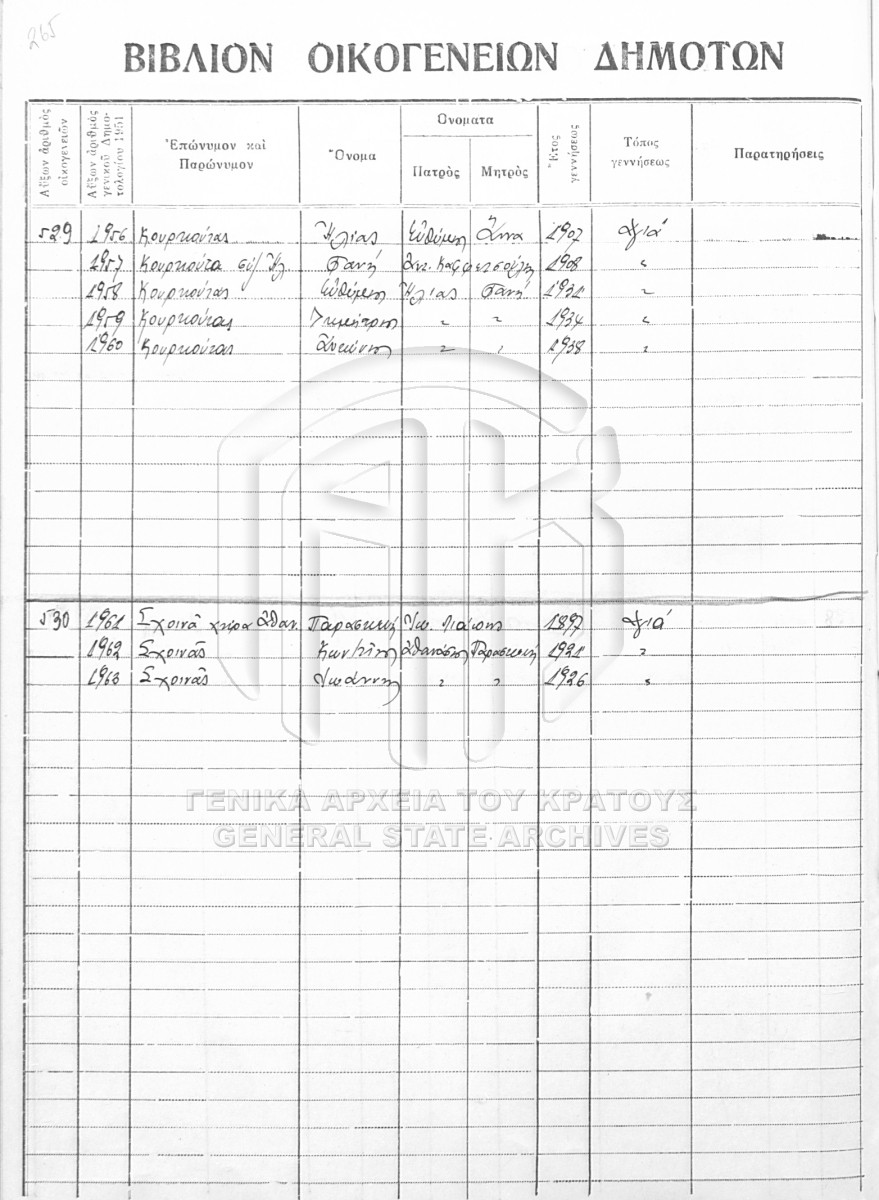 265
ΒΙΒΛΙΟΝ ΟΙΚΟΓΕΝΕΙΩΝ ΔΗΜΟΤΩΝ
Αὔξων ἀριθμὸς οἰκογενειῶν
Αὔξων ἀριθμὸς γενικοῦ Δημοτολογίου 1951
Ἐπώνυμον καὶ Παρώνυμον
Ὄνομα
Ὀνοματα
Πατρὸς
Μητρὸς
Ἔτος γεννήσεως
Τόπος γεννήσεως
Παρατηρήσεις
529 1956 Κουρκούτας Ἠλίας Εὐθύμιος Ἄννα 1907 Ἁγιά
1957 Κουρκούτα συζ Ἠλ. Φανή Ἀντ. 1908 〃
1958 Κουρκούτας Εὐθύμιος Ἠλίας Φανή 1931 〃
1959 Κουρκούτας Δημήτριος 〃 〃 1934 〃
1960 Κουρκούτας Ἀντώνιος 〃 〃 1938 〃
530 1961 Σχοινᾶ χήρα Ἀθαν. Παρασκευή Ἰω. 1897 Ἁγιά
1962 Σχοινᾶς Κων/τῖνος Ἀθανάσιος Παρασκευή 1921 〃
1963 Σχοινᾶς Ἰωάννης 〃 〃 1926 〃
ΓΕΝΙΚΑ ΑΡΧΕΙΑ ΤΟΥ ΚΡΑΤΟΥΣ
GENERAL STATE ARCHIVES